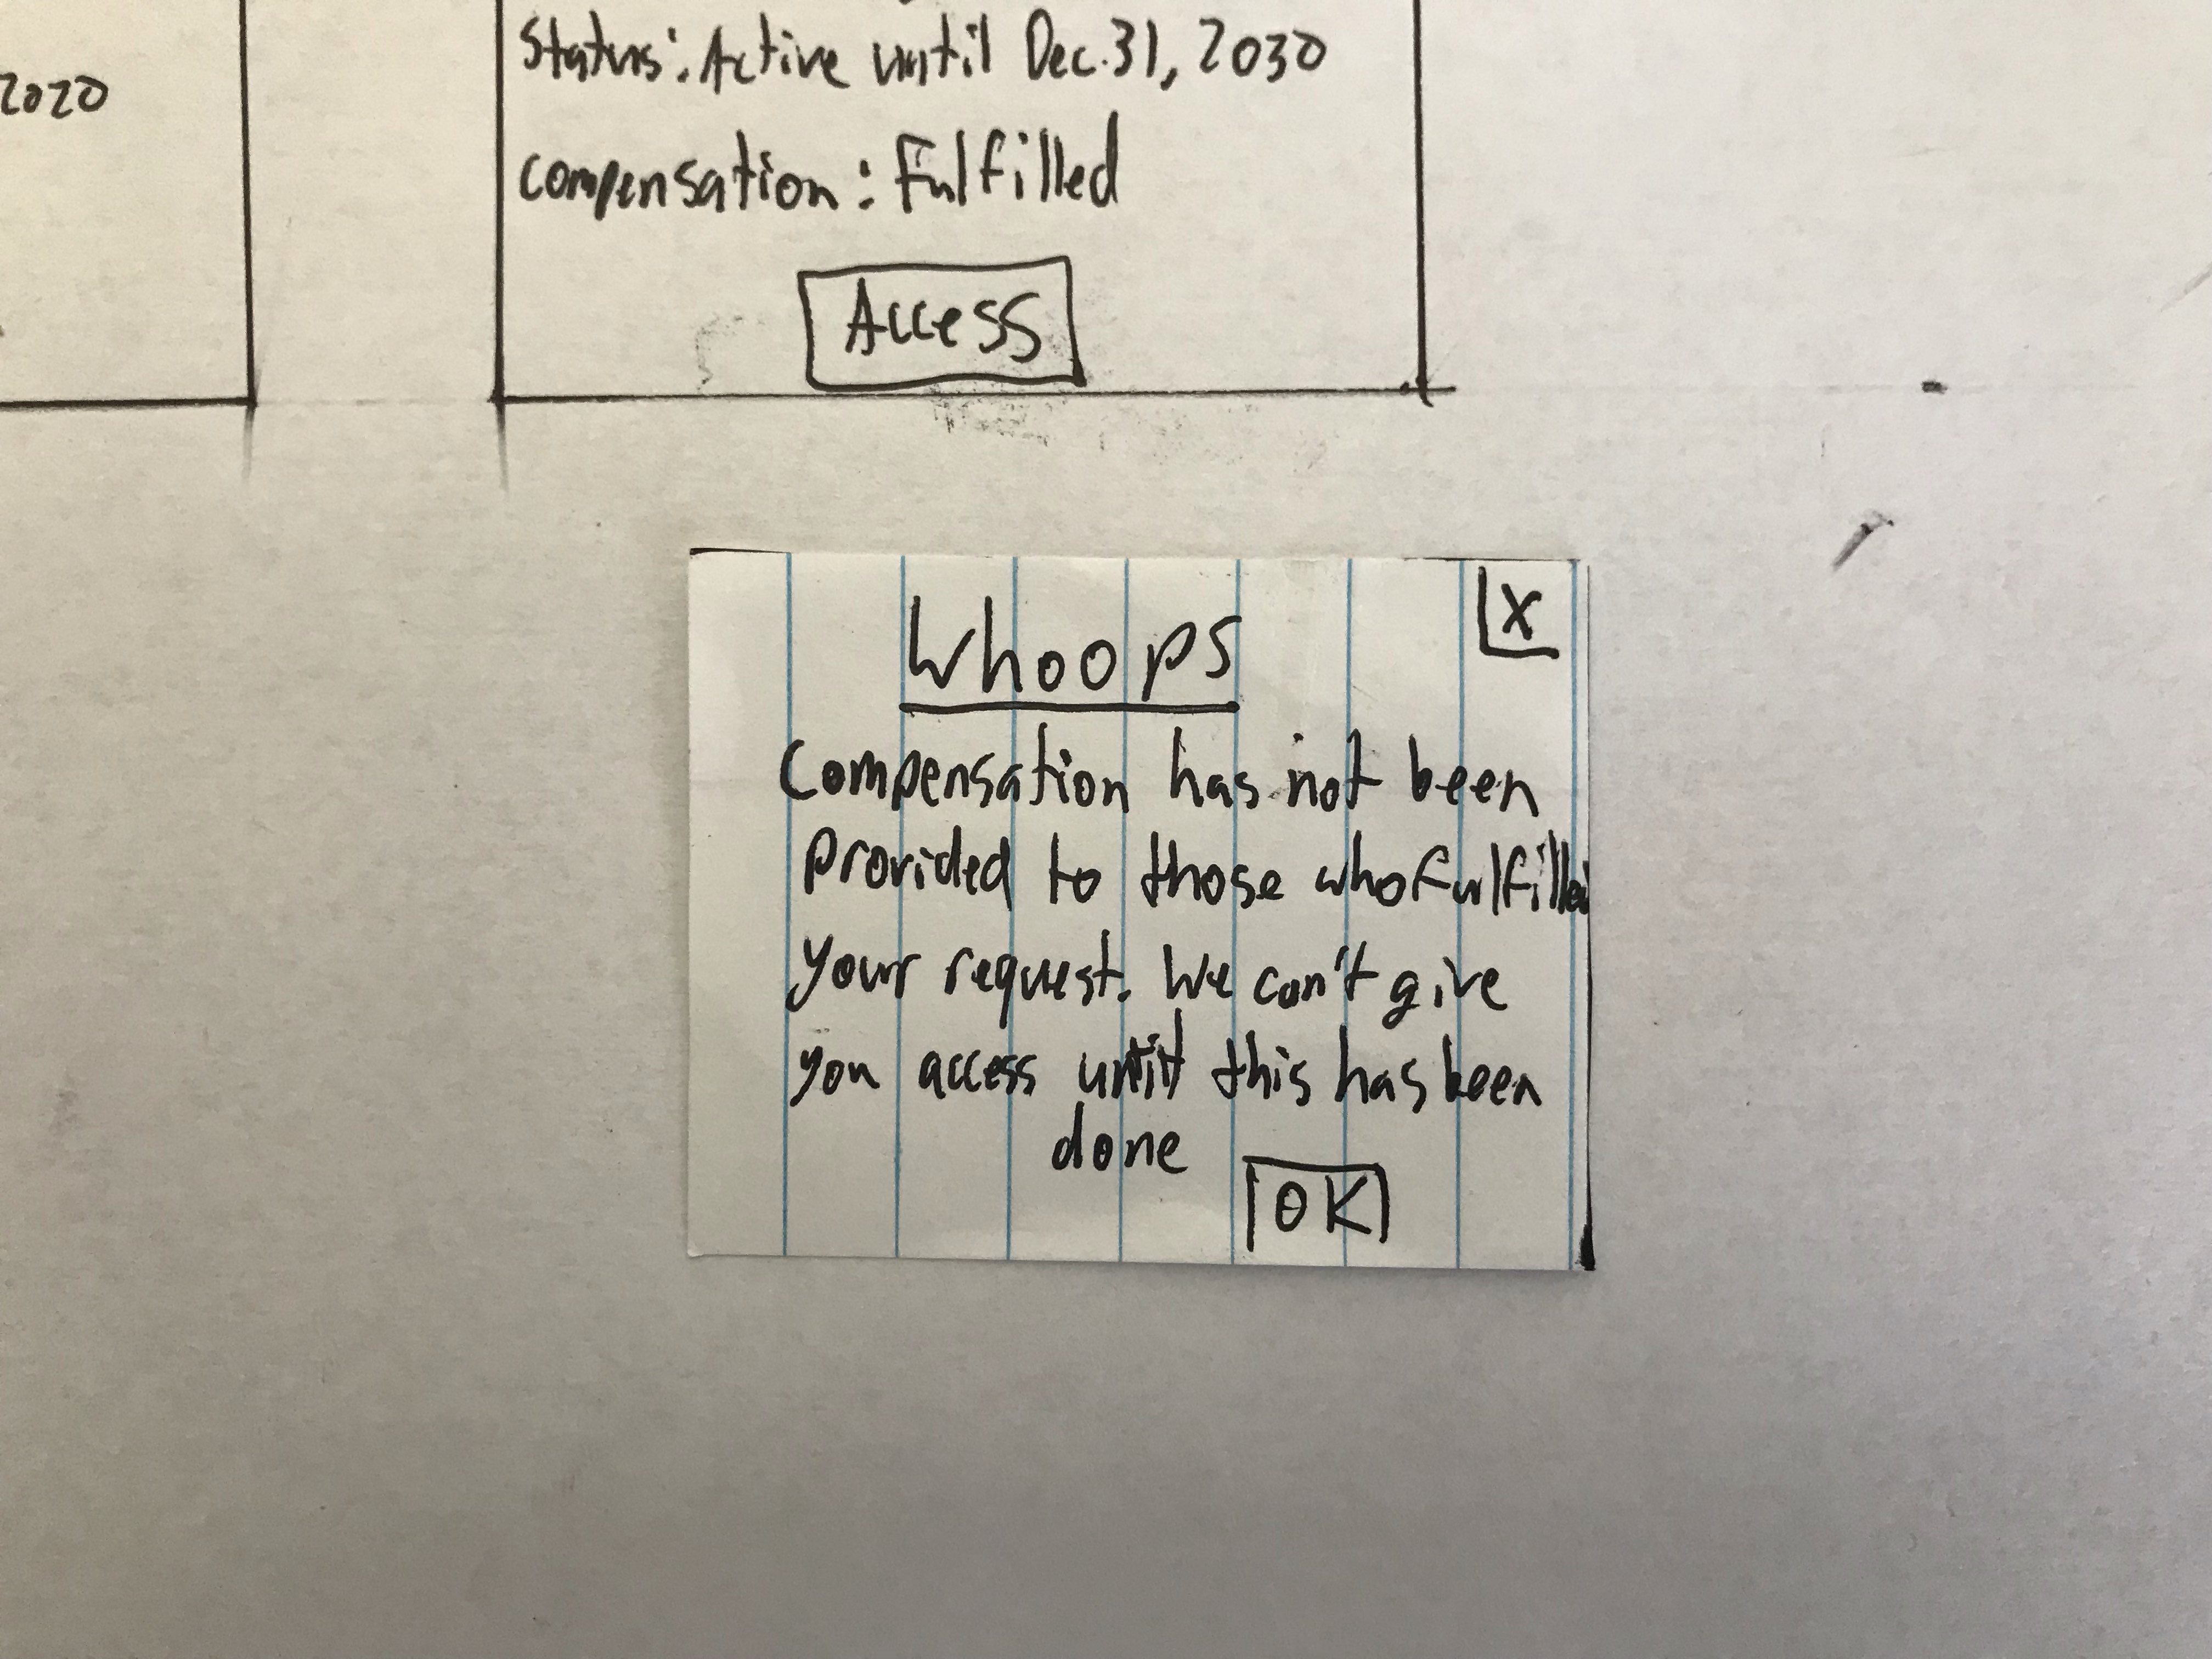 Status: Active until Dec. 31, 2030
2020
compensation: Fulfilled
Access
Whoops
X
Compensation has not been
provided to those who fulfilled
your request. We can't give
you access until this has been
done
OK